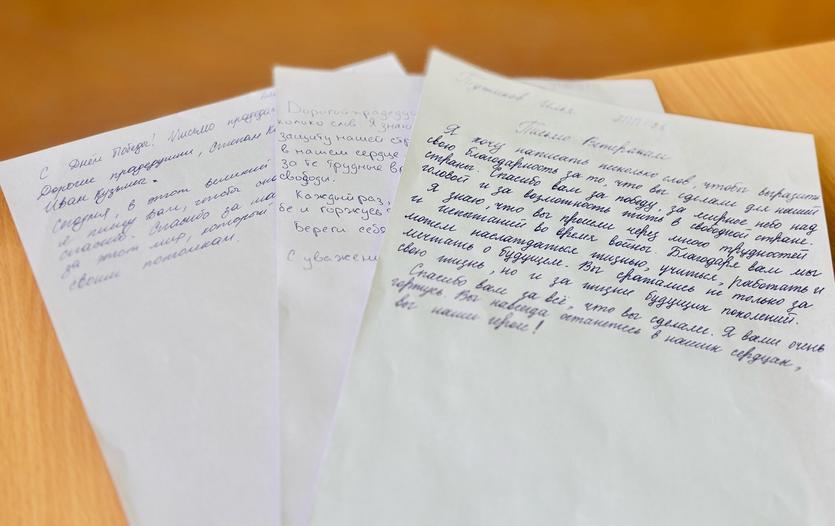 С Днём Победы! Письмо прадедам
Дорогие прадедушки, Степан К
Иван Кузьмич.
Сегодня, в этот великий
я пишу вам, чтобы ска
спасибо. Спасибо за ша
за этот мир, который
своим потомкам.
Дорогой прадедуш
колько слов. Я знаю
защиту нашей стр
в нашем сердце
За те трудные вр
свободи.
Каждый раз,
бе и горжусь
Береги себя
С уважени
Илья
Письмо Ветеранам
Я хочу написать несколько слов, чтобы выразить
свою благодарность за то, что вы сделали для нашей
страны. Спасибо вам за победу, за мирное небо над
головой и за возможность жить в свободной стране.
Я знаю, что вы прошли через много трудностей
и испытаний во время войны. Благодаря вам мы
можем наслаждаться жизнью, учиться, работать и
мечтать о будущем. Вы сражались не только за
свою жизнь, но и за жизни будущих поколений.
Спасибо вам за всё, что вы сделали. Я вами очень
горжусь. Вы навсегда останетесь в наших сердцах,
вы наши герои!